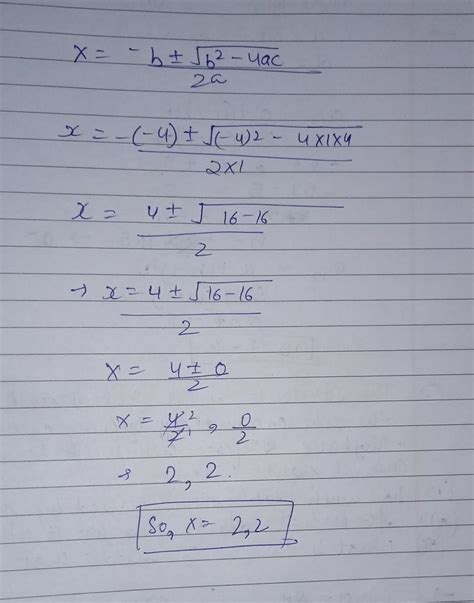 x = -b ± √b² - 4ac / 2a
x = -(-4) ± √(-4)2 - 4x1x4 / 2x1
x = 4 ± √ 16-16 / 2
→ x = 4 ± √16-16 / 2
x = 4 ± 0 / 2
x = 4² / 2¹ , 0 / 2
2, 2.
So, x = 2,2